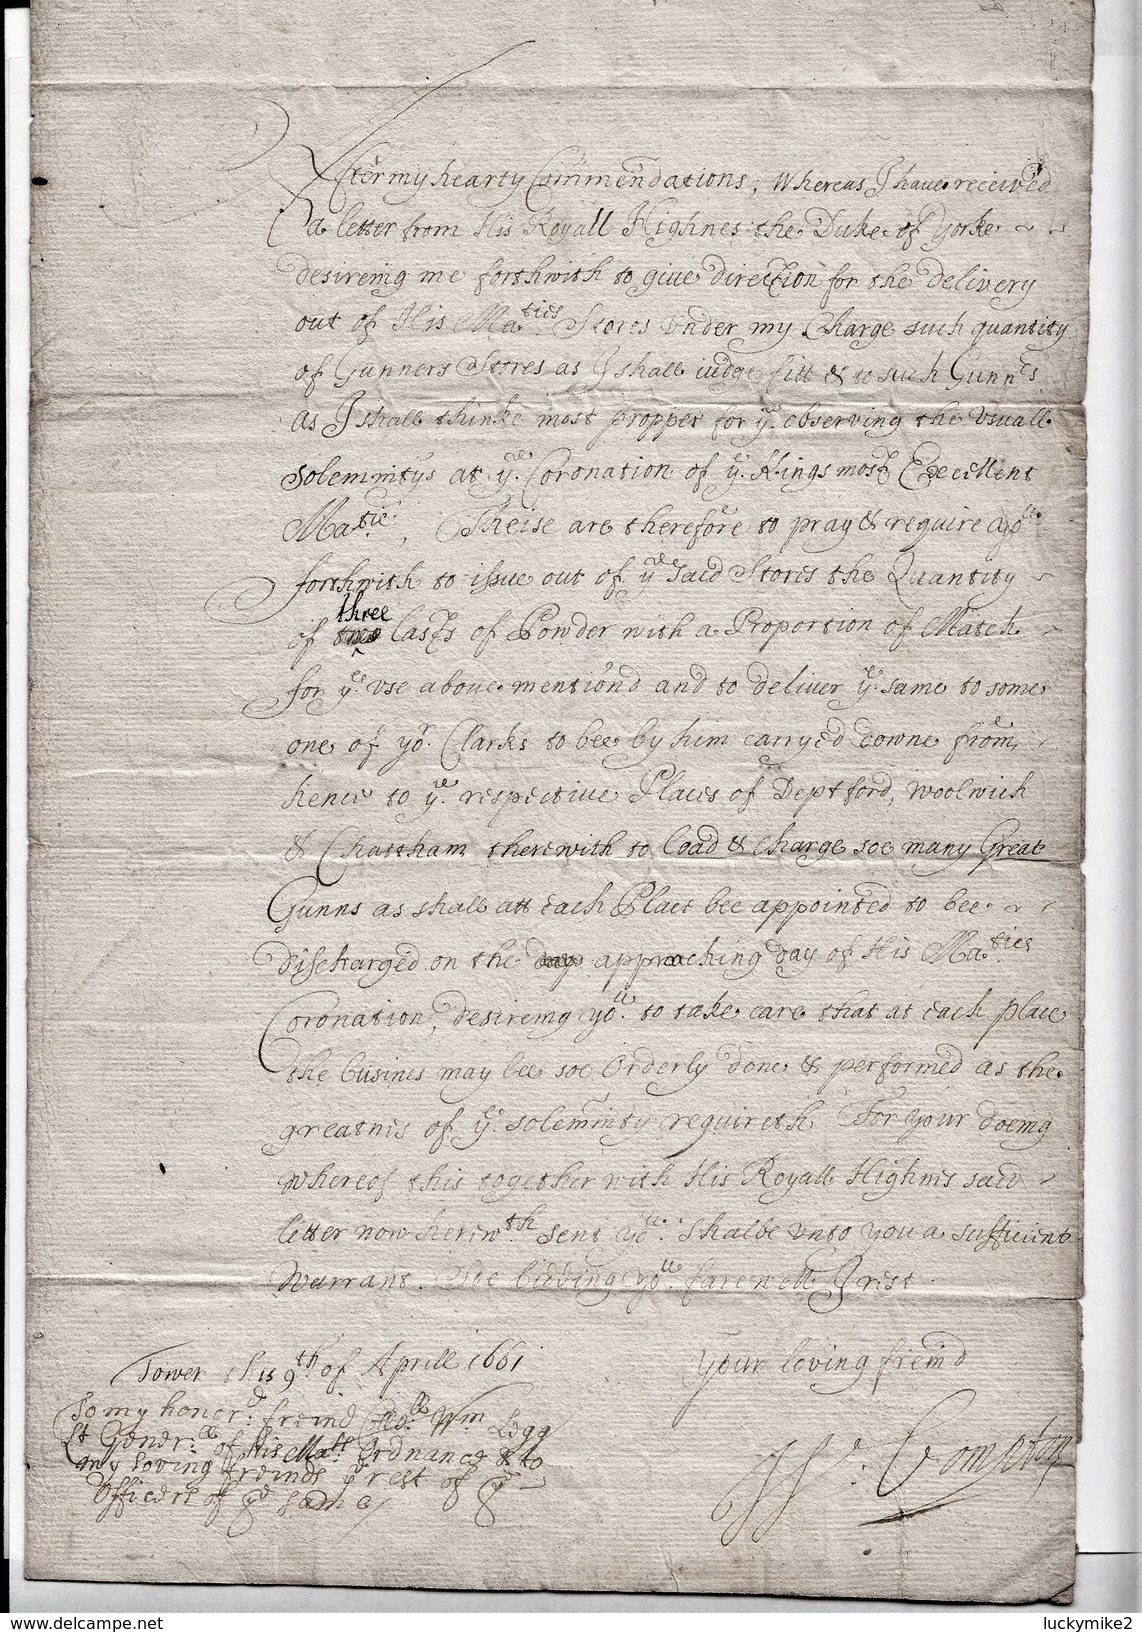 After my hearty Com̄endations; Whereas I have received
a letter from His Royall Highnes the Duke of Yorke
desireing me forthwith to giue direction for the delivery
out of His Ma:ties Stores vnder my Charge such quantity
of Gunners Stores as I shall iudge fitt & to such Gunn:rs
as I shall thinke most propper for ye. observing the vsuall
Solemnitys at ye. Coronation of ye. Kings most Excellent
Ma:tie. Theise are therefore to pray & require yo:u
forthwith to issue out of ye said Stores the Quantity
of three lasts of Powder with a Proportion of Match
for ye. vse aboue mention'd and to deliver ye. same to some
one of yor. Clarks to bee by him carryed downe from
hence to ye. respective Places of Deptford, Woolwich
& Chattham therewith to load & charge soe many Great
Gunns as shall att each Place bee appointed to bee
discharged on the approaching day of His Ma:ties
Coronation, desireing yo:u to take care that at each place
the busines may bee soe Orderly done & performed as the
greatnes of ye. solemnity requireth For your doeing
whereof this together with His Royall Highnes said
letter now herew:th sent yo:u. shalbe vnto you a sufficient
Warrant. Soe bidding yo:u farewell I rest
Your loving freind
Wm: Compton
Tower this 9th of Aprill 1661
To my honor:d freind Wm Legg
Lt Gener:ll of His Ma:ts Ordnance & to
my loving freinds ye rest of ye
Officers of ye same
www.delcampe.net
luckymike2